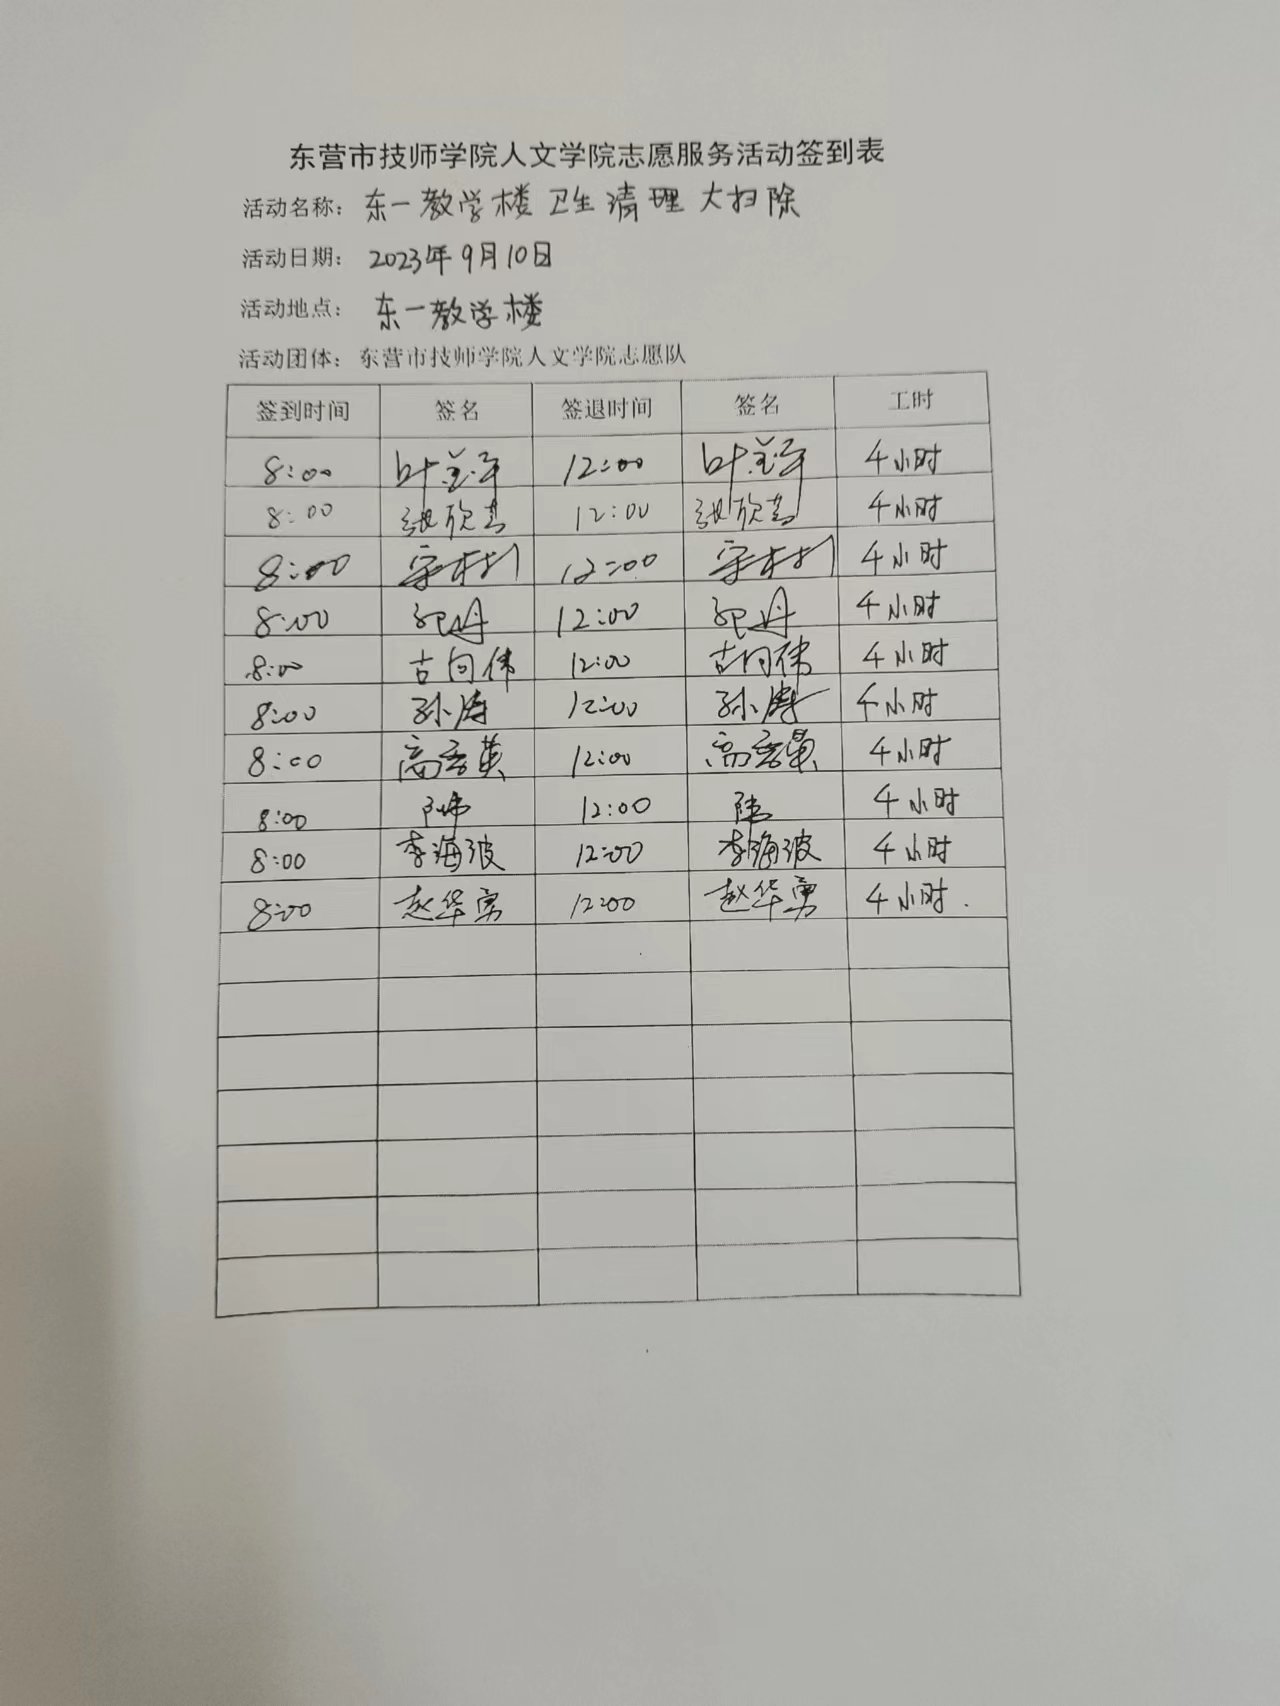 东营市技师学院人文学院志愿服务活动签到表
活动名称：东一教学楼卫生清理大扫除
活动日期：2023年9月10日
活动地点：东一教学楼
活动团体：东营市技师学院人文学院志愿队
签到时间 签名 签退时间 签名 工时
8:00 叶 12:00 叶 4小时
8:00 张欣 12:00 张欣 4小时
8:00 12:00 4小时
8:00 12:00 4小时
8:00 古向伟 12:00 古向伟 4小时
8:00 孙涛 12:00 孙涛 4小时
8:00 高秀英 12:00 高秀英 4小时
8:00 12:00 4小时
8:00 李海波 12:00 李海波 4小时
8:00 赵华勇 12:00 赵华勇 4小时.